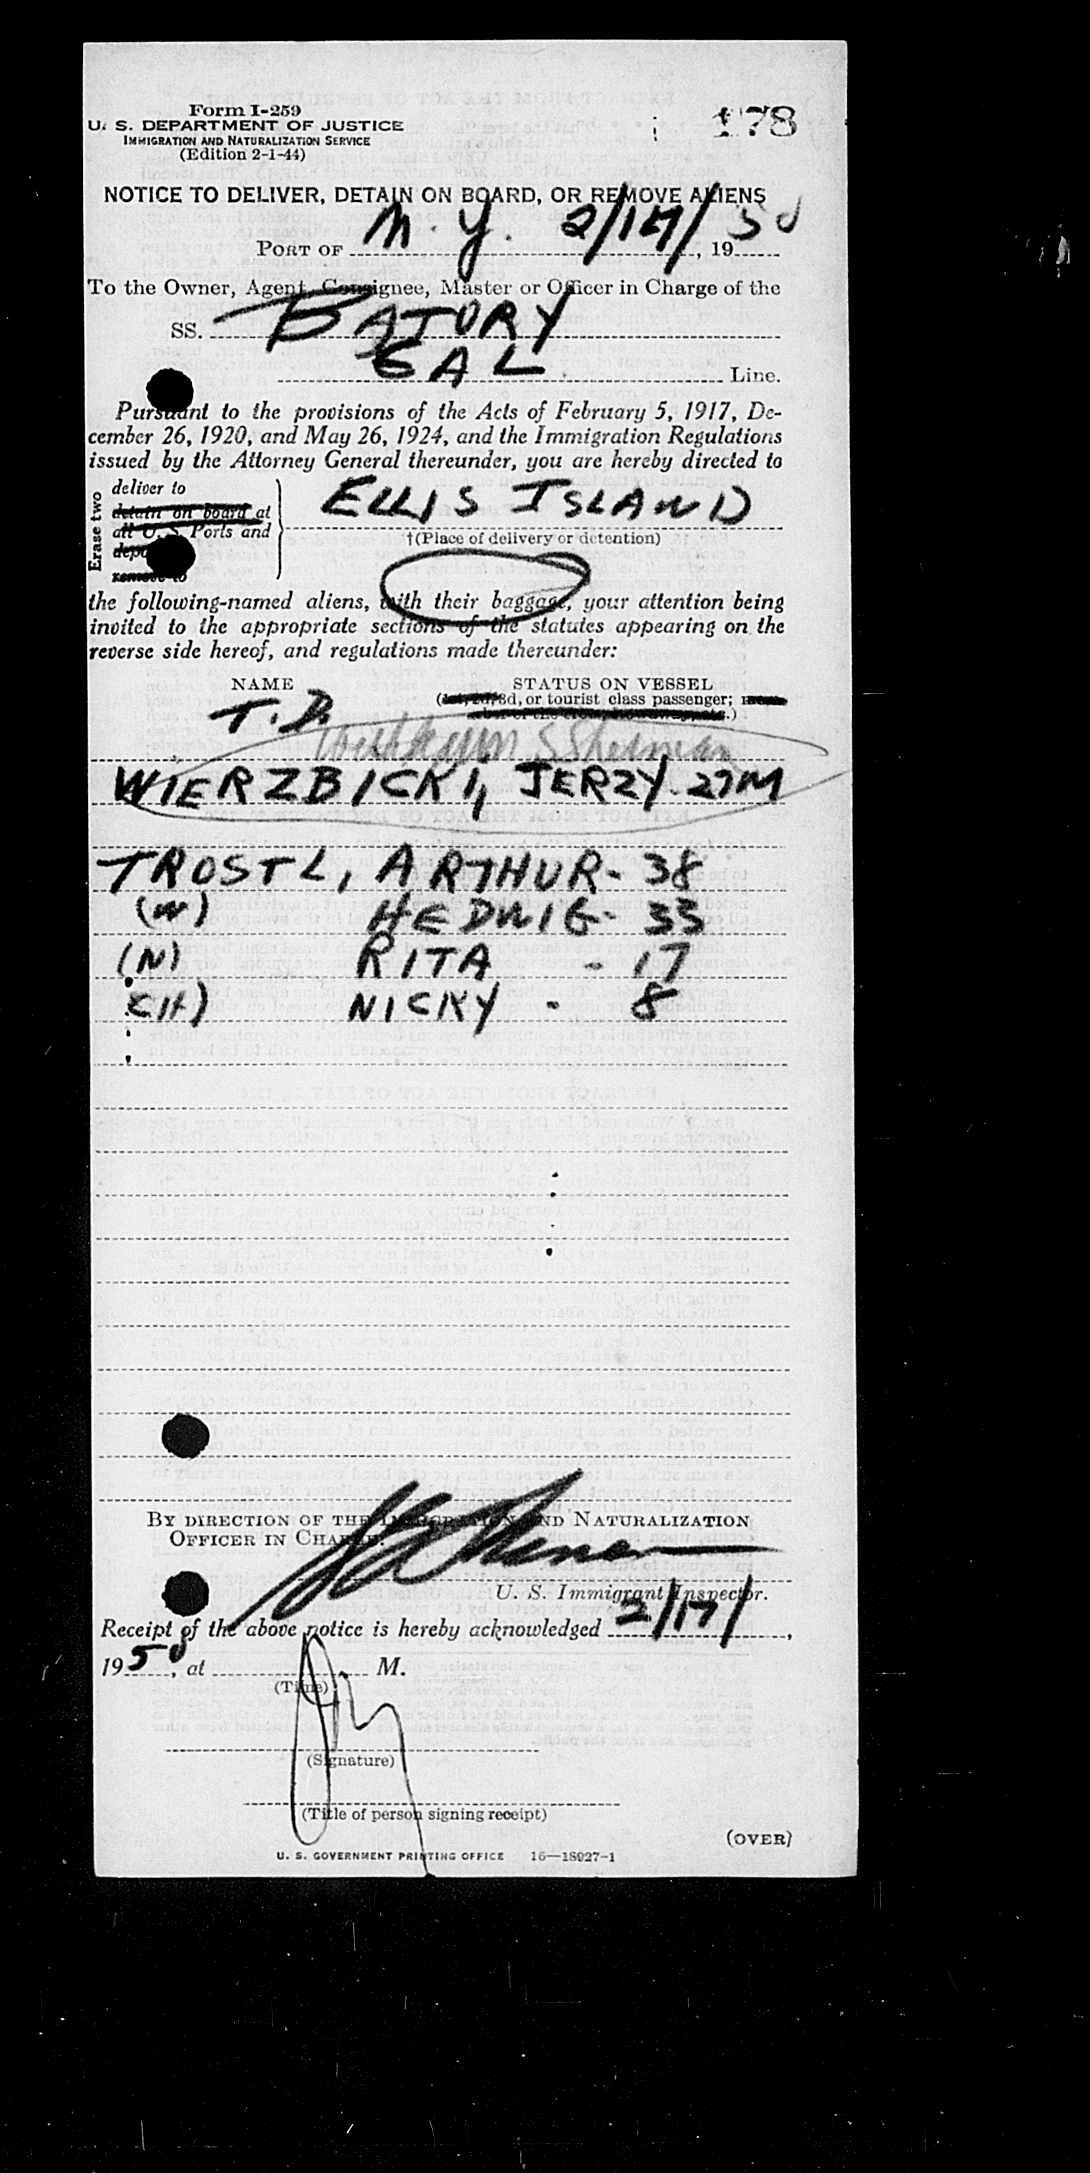 Form I-259
U. S. DEPARTMENT OF JUSTICE
IMMIGRATION AND NATURALIZATION SERVICE
(Edition 2-1-44)
178
NOTICE TO DELIVER, DETAIN ON BOARD, OR REMOVE ALIENS
PORT OF N. Y. 2/17/, 1950
To the Owner, Agent, Consignee, Master or Officer in Charge of the
SS. BATORY
GAL Line.
Pursuant to the provisions of the Acts of February 5, 1917, De-
cember 26, 1920, and May 26, 1924, and the Immigration Regulations
issued by the Attorney General thereunder, you are hereby directed to
Erase two
deliver to
detain on board at
all U. S. Ports and
remove to
ELLIS ISLAND
†(Place of delivery or detention)
the following-named aliens, with their baggage, your attention being
invited to the appropriate sections of the statutes appearing on the
reverse side hereof, and regulations made thereunder:
NAME
STATUS ON VESSEL
(1st, 2d, 3d, or tourist class passenger;
T. D.
WIERZBICKI, JERZY 27M
TROSTL, ARTHUR - 38
(W) HEDWIG - 33
(N) RITA - 17
(CH) NICKY - 8
BY DIRECTION OF THE IMMIGRATION AND NATURALIZATION
OFFICER IN CHARGE:
U. S. Immigrant Inspector.
Receipt of the above notice is hereby acknowledged 2/17/,
1950, at M.
(Time)
(Signature)
(Title of person signing receipt)
(OVER)
U. S. GOVERNMENT PRINTING OFFICE 16—18927-1